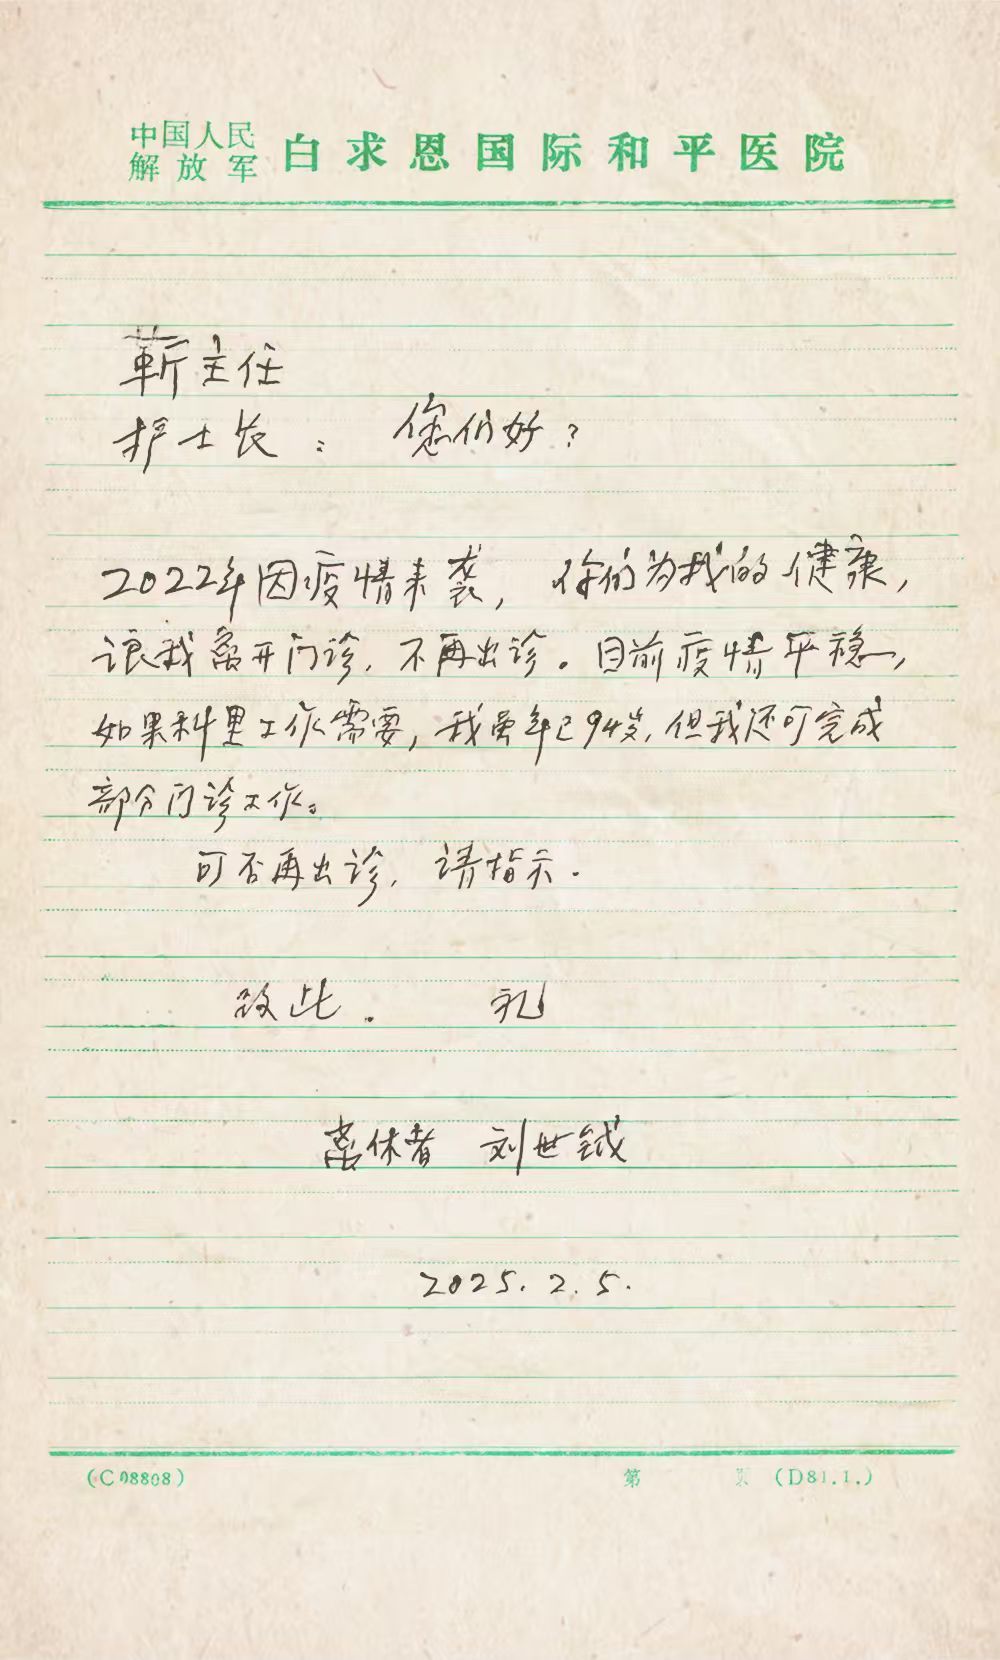 中国人民解放军 白求恩国际和平医院
靳主任
护士长： 您们好？
2022年因疫情来袭，你们为我的健康，
让我离开门诊，不再出诊。目前疫情平稳，
如果科里工作需要，我虽年已94岁，但我还可完成
部分门诊工作。
可否再出诊，请指示．
致此． 礼
离休者 刘世钺
2025.2.5.
(C08808) 第 页 (D81.1.)